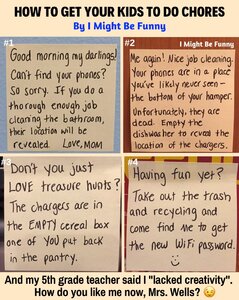 HOW TO GET YOUR KIDS TO DO CHORES
By I Might Be Funny
#1
Good morning my darlings!
Can't find your phones?
So sorry. If you do a
thorough enough job
cleaning the bathroom,
their location will be
revealed. Love, MOM
#2
I Might Be Funny
Me again! Nice job cleaning.
Your phones are in a place
you've likely never seen -
the bottom of your hamper.
Unfortunately, they are
dead. Empty the
dishwasher to reveal the
location of the chargers.
#3
Don't you just
LOVE treasure hunts?
The chargers are in
the EMPTY cereal box
one of YOU put back
in the pantry.
#4
Having fun yet?
Take out the trash
and recycling and
come find me to get
the new WiFi password.
And my 5th grade teacher said I "lacked creativity".
How do you like me now, Mrs. Wells? 😉